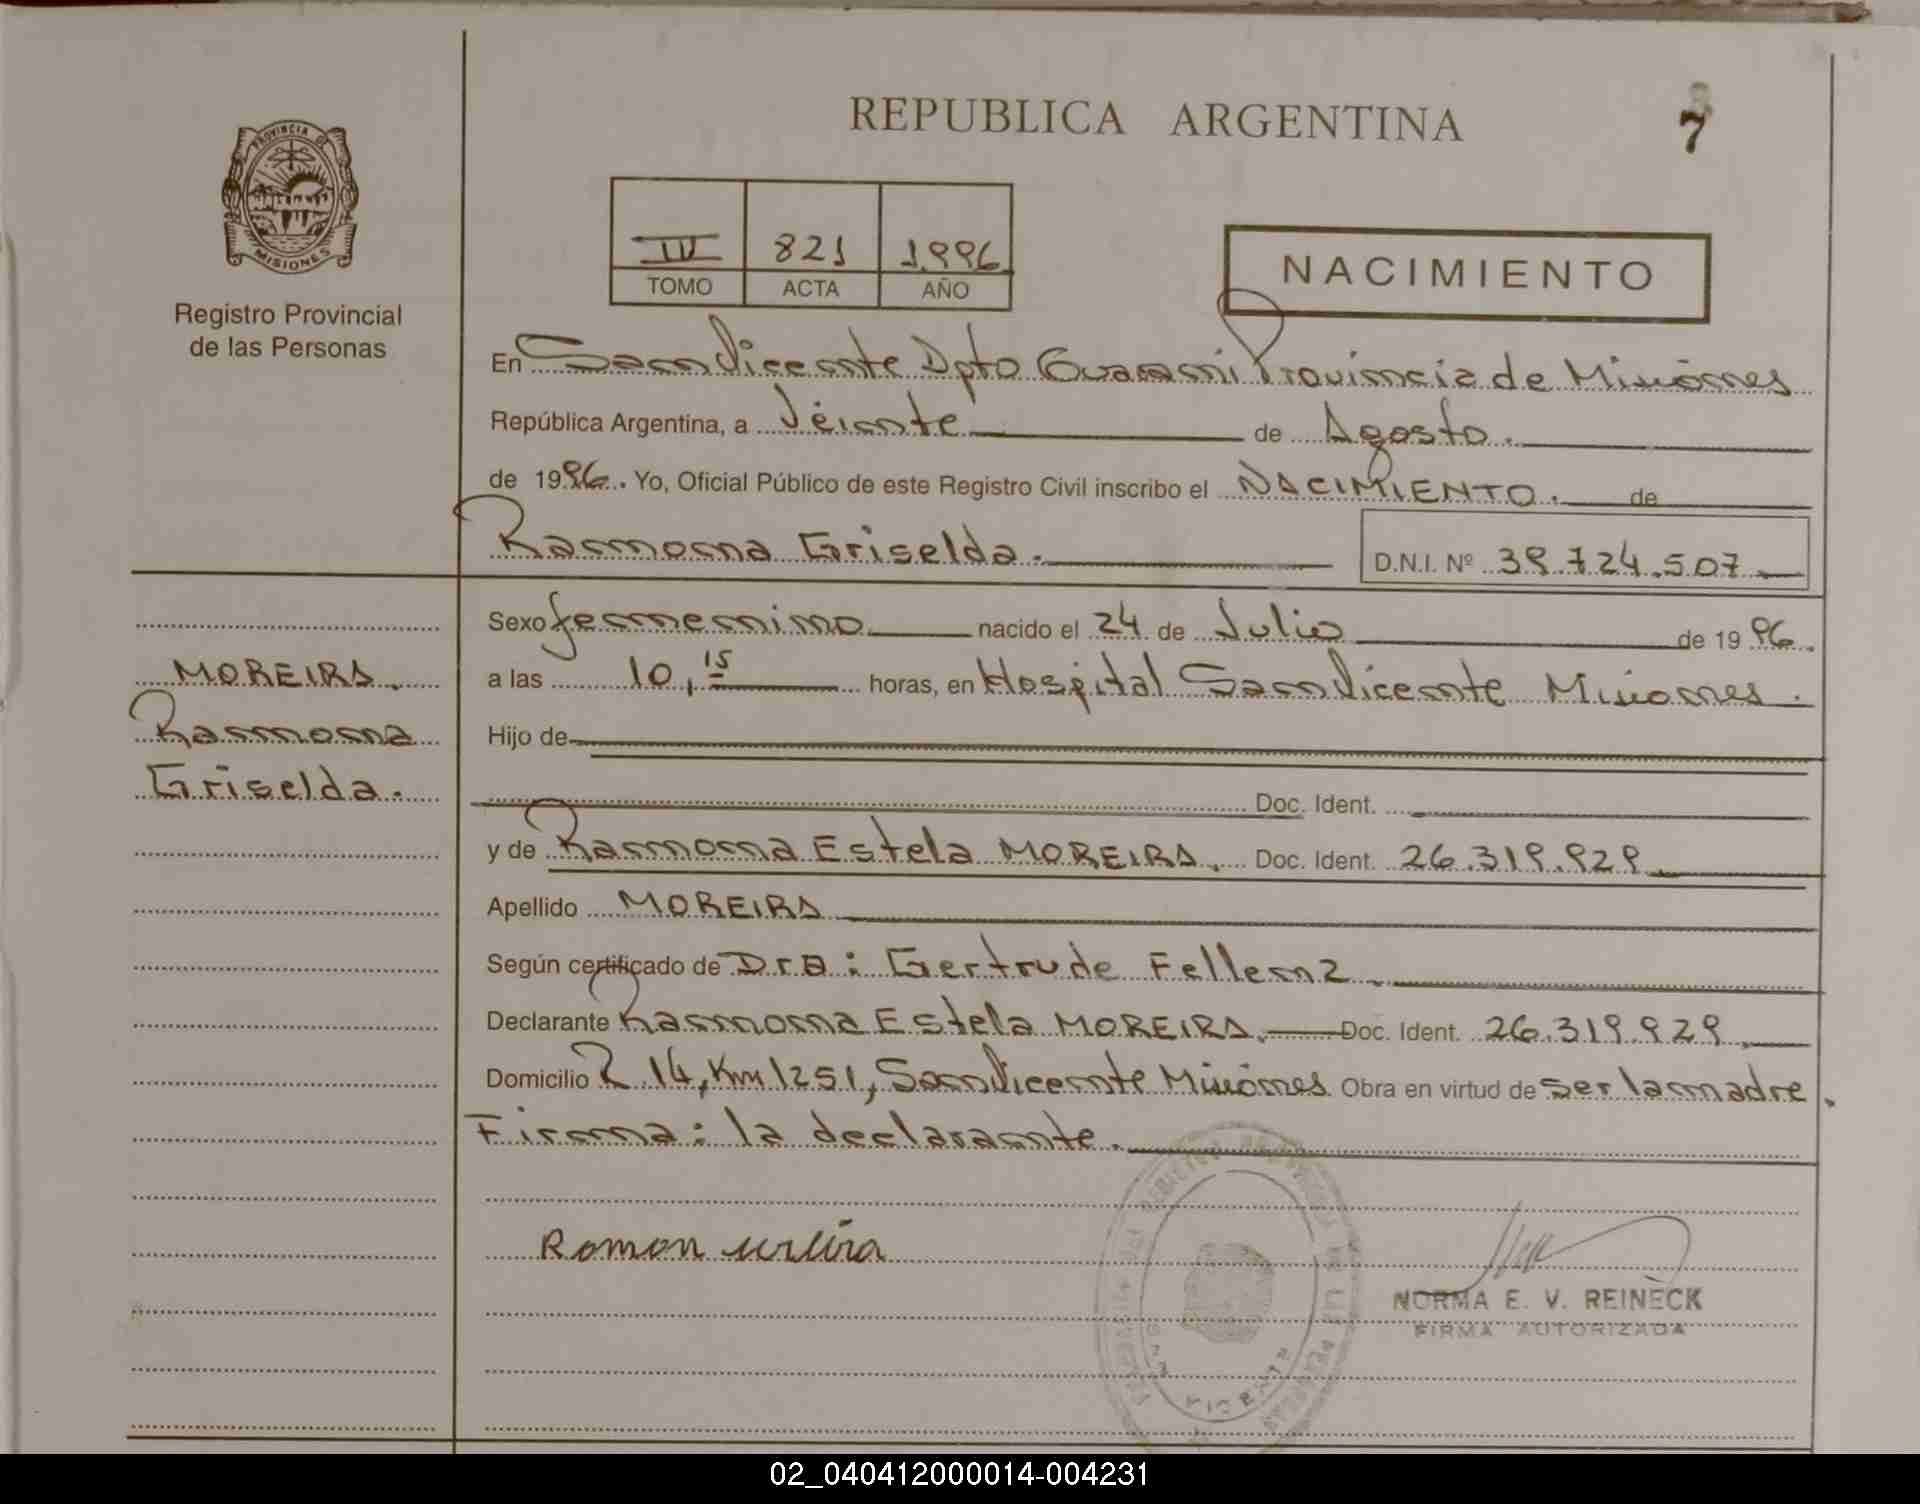 REPUBLICA ARGENTINA
7
PROVINCIA DE
MISIONES
Registro Provincial
de las Personas
IV 821 1.996
TOMO ACTA AÑO
NACIMIENTO
En San Vicente Dpto Guaraní Provincia de Misiones
República Argentina, a Veinte de Agosto.
de 1996. Yo, Oficial Público de este Registro Civil inscribo el NACIMIENTO. de
Ramona Griselda.
D.N.I. Nº 39.724.507
Sexo femenino nacido el 24 de Julio de 1996.
MOREIRA.
Ramona
Griselda.
a las 10,15 horas, en Hospital San Vicente Misiones.
Hijo de
Doc. Ident.
y de Ramona Estela MOREIRA. Doc. Ident. 26.319.929
Apellido MOREIRA
Según certificado de Dra: Gertrude Fellenz
Declarante Ramona Estela MOREIRA. Doc. Ident. 26.319.929
Domicilio R 14, Km 1251, San Vicente Misiones Obra en virtud de ser la madre.
Firma: la declarante.
Romon
NORMA E. V. REINECK
FIRMA AUTORIZADA
02_040412000014-004231